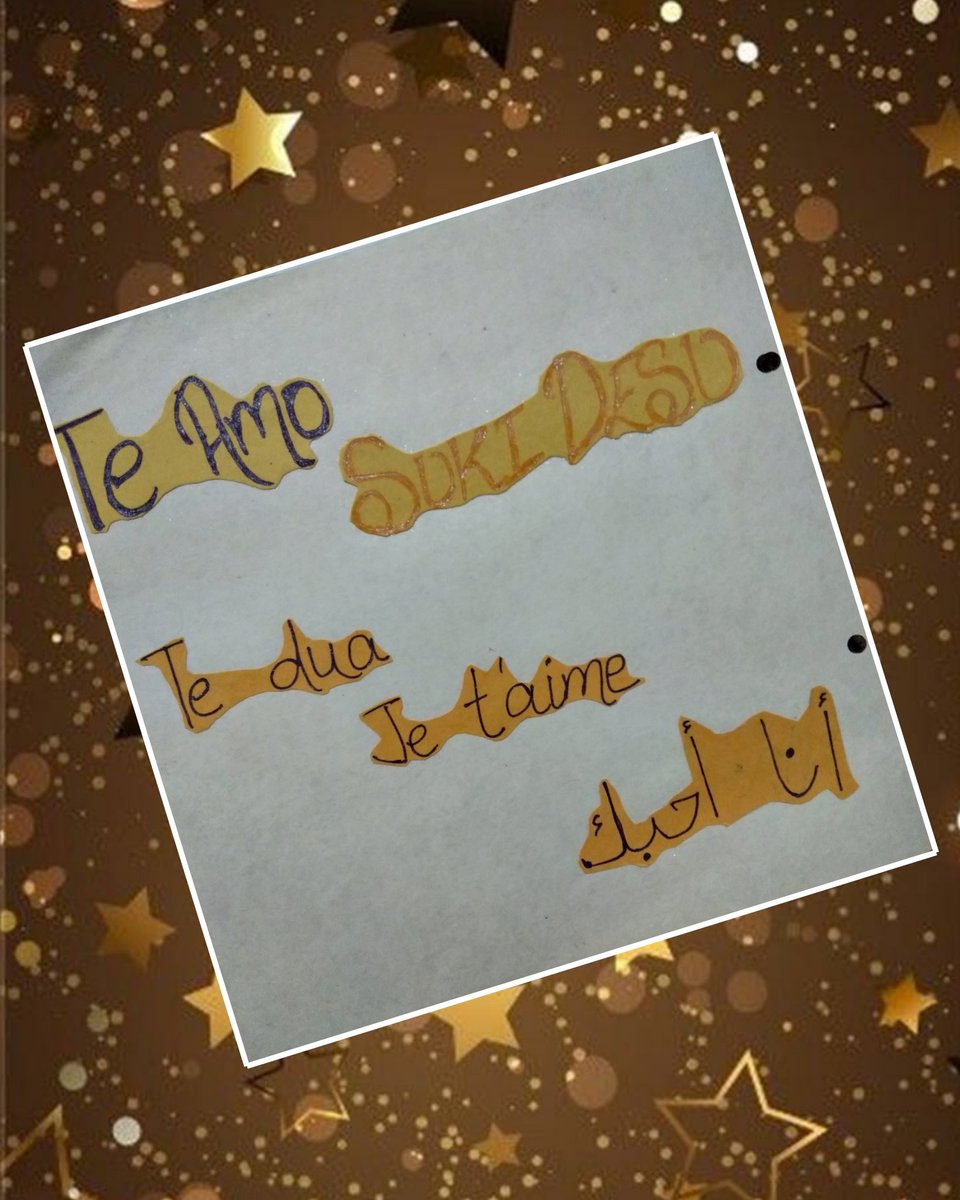 Te Amo
SUKI DESU
Te dua
Je t'aime
أنا أحبك